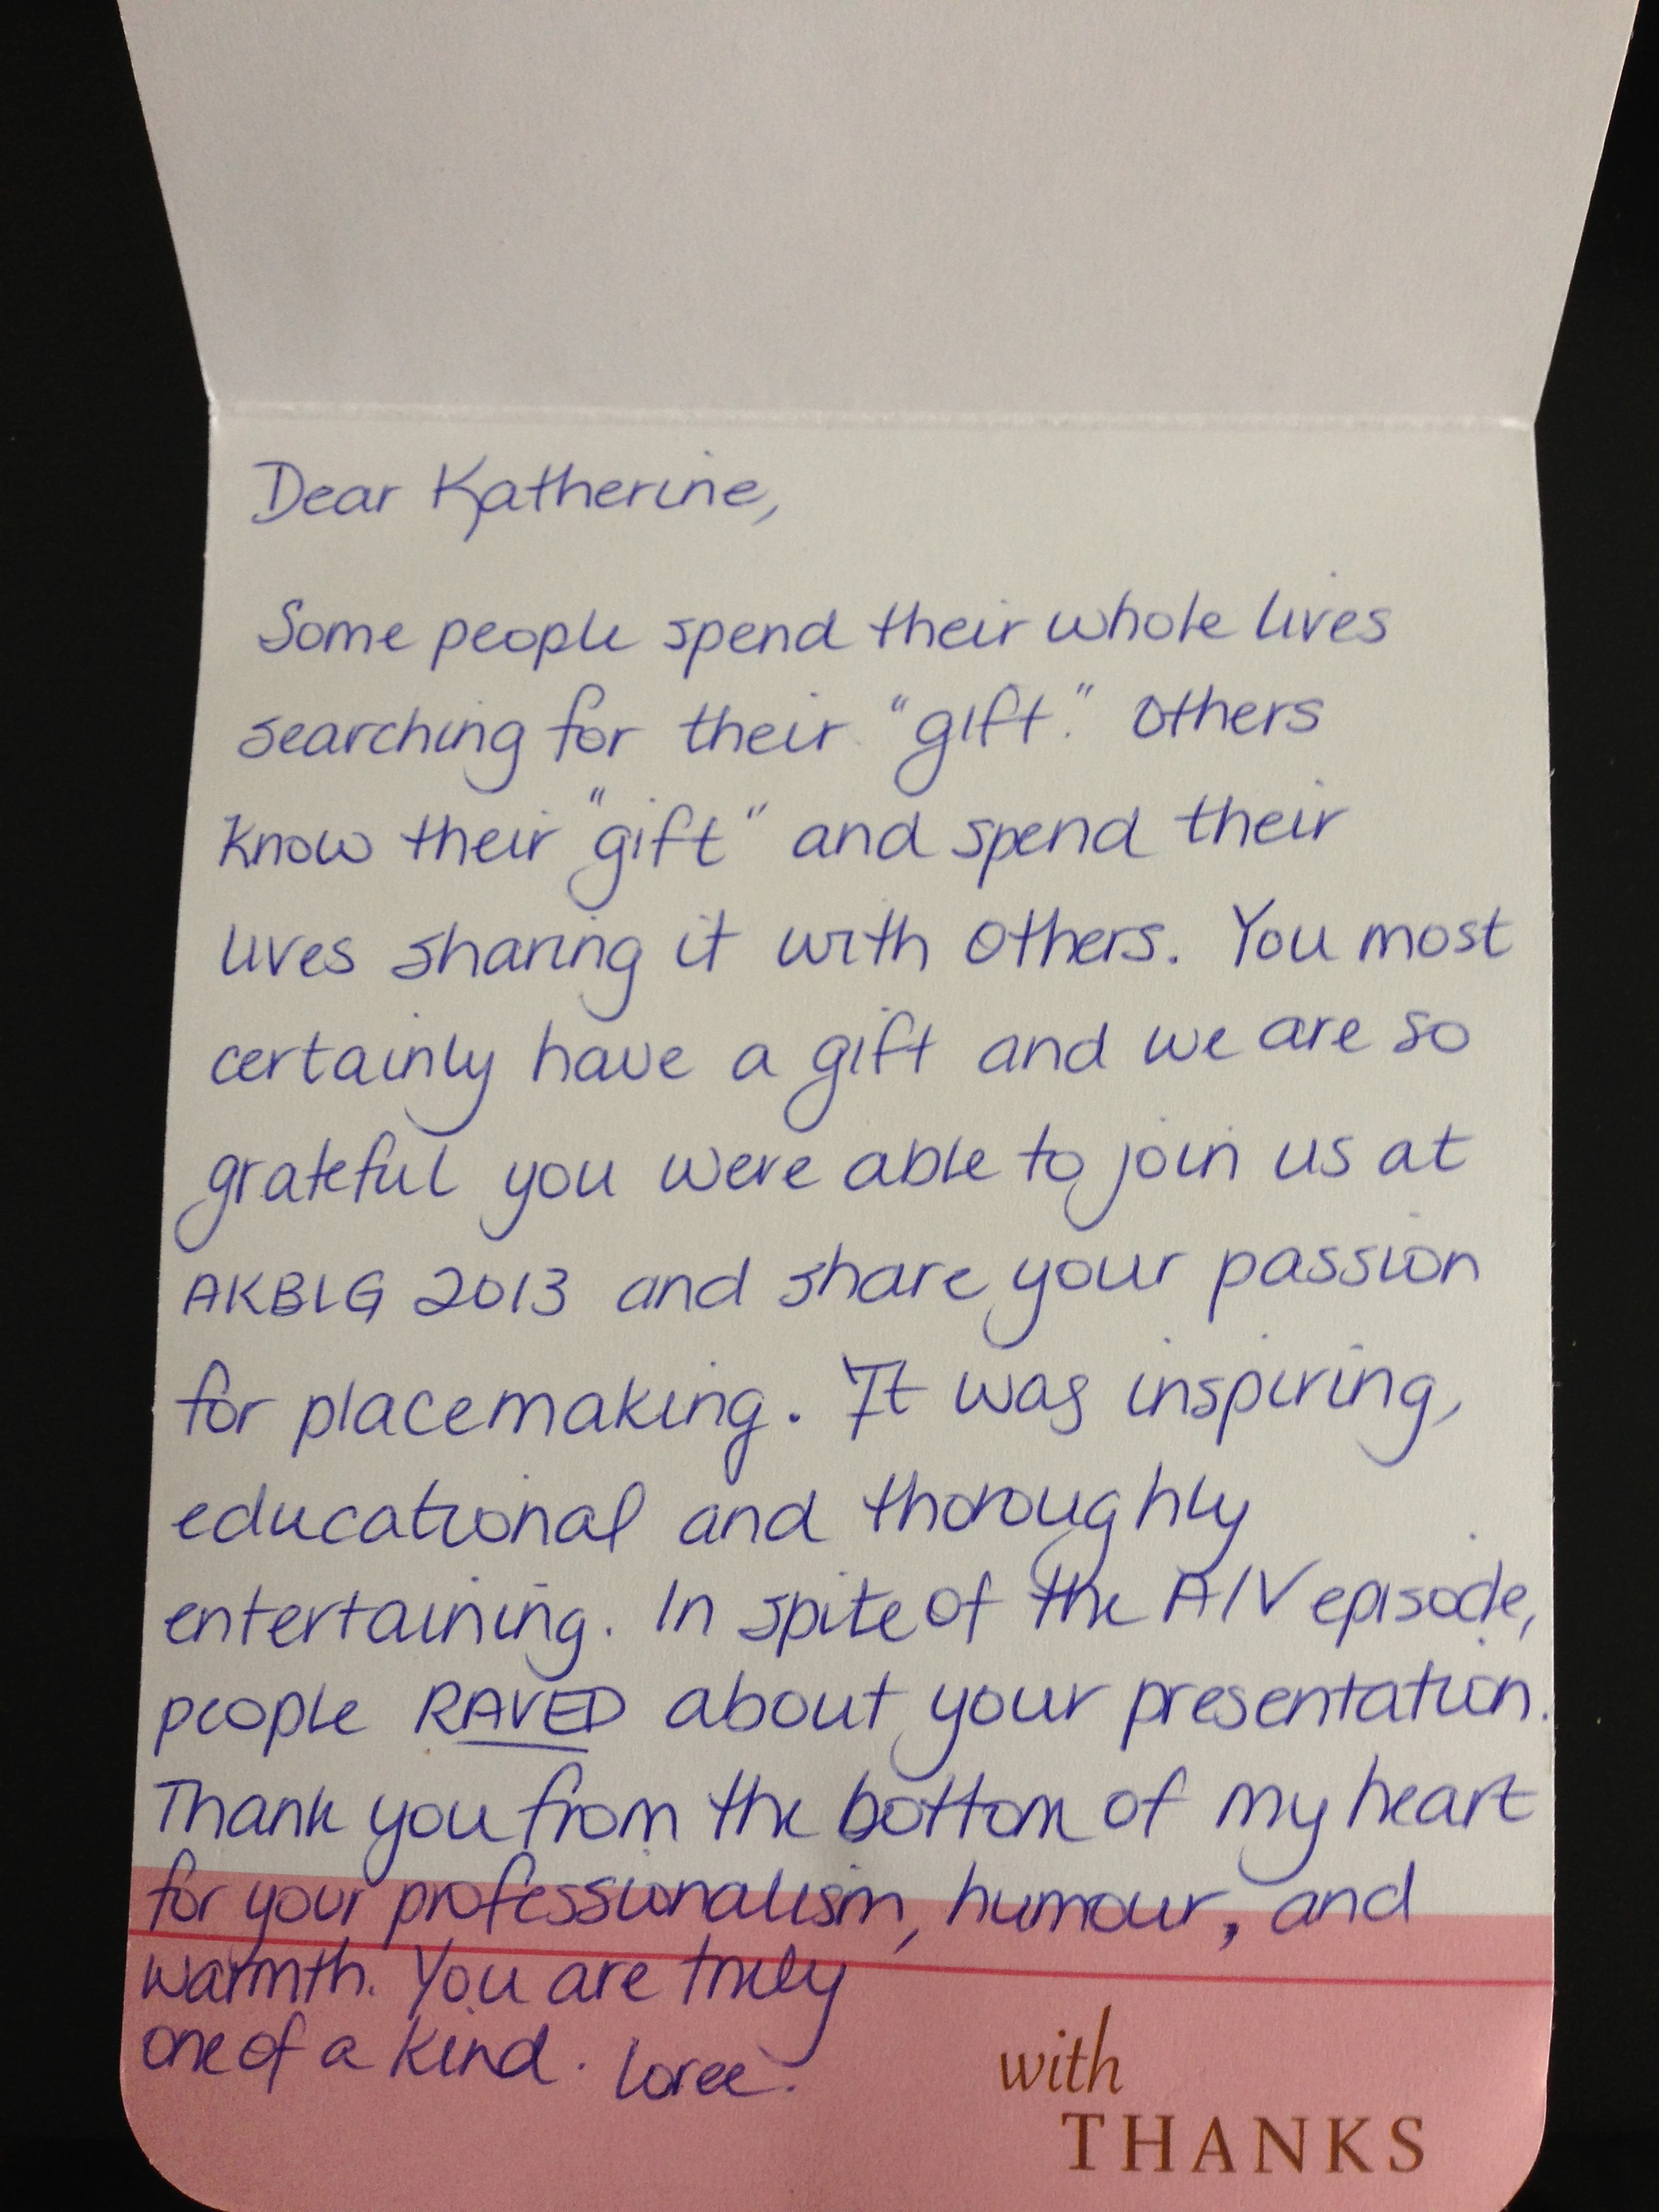 Dear Katherine,
Some people spend their whole lives
searching for their "gift." Others
know their "gift" and spend their
lives sharing it with others. You most
certainly have a gift and we are so
grateful you were able to join us at
AKBLG 2013 and share your passion
for placemaking. It was inspiring,
educational and thoroughly
entertaining. In spite of the A/V episode,
people RAVED about your presentation.
Thank you from the bottom of my heart
for your professionalism, humour, and
warmth. You are truly
one of a kind. Loree.
with
THANKS